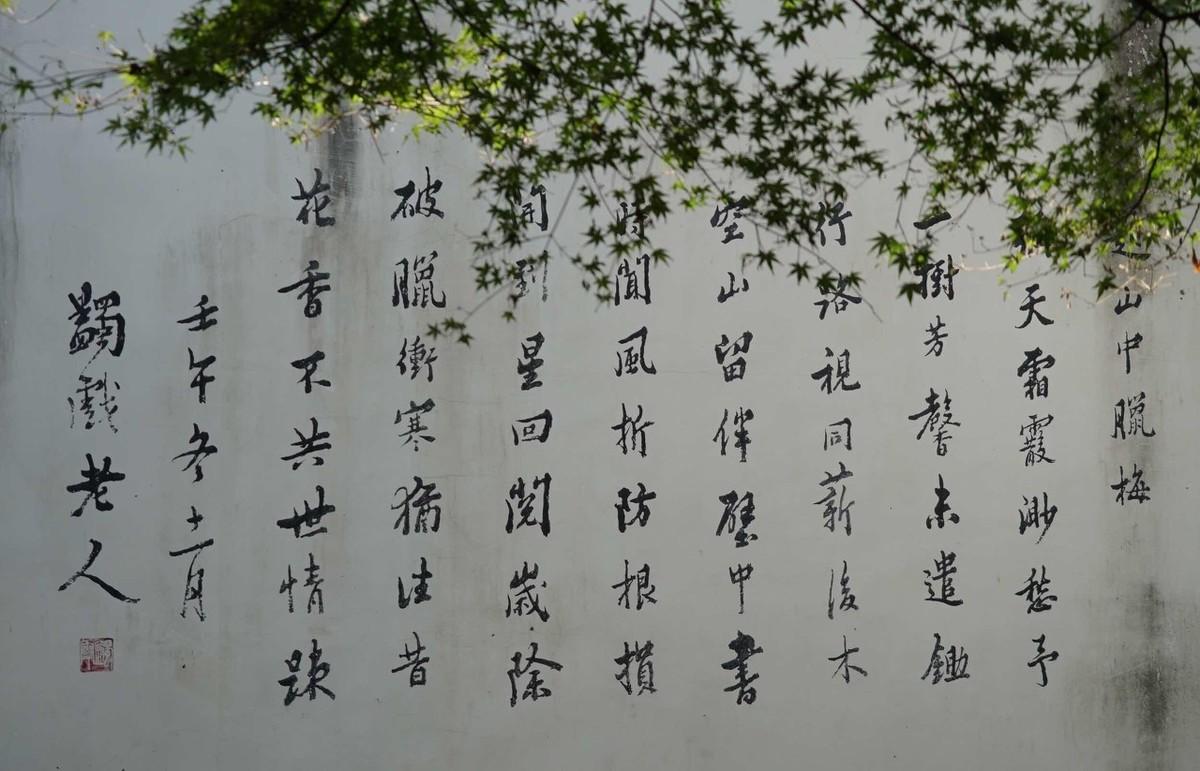 山中臘梅
天霜霰渺愁予
一樹芳馨未遣鋤
行路視同薪後木
空山留伴壁中書
時聞風折防根損
開到星回閱歲除
破臘衝寒猶往昔
花香不共世情踈
壬午冬十二月
蠲戲老人